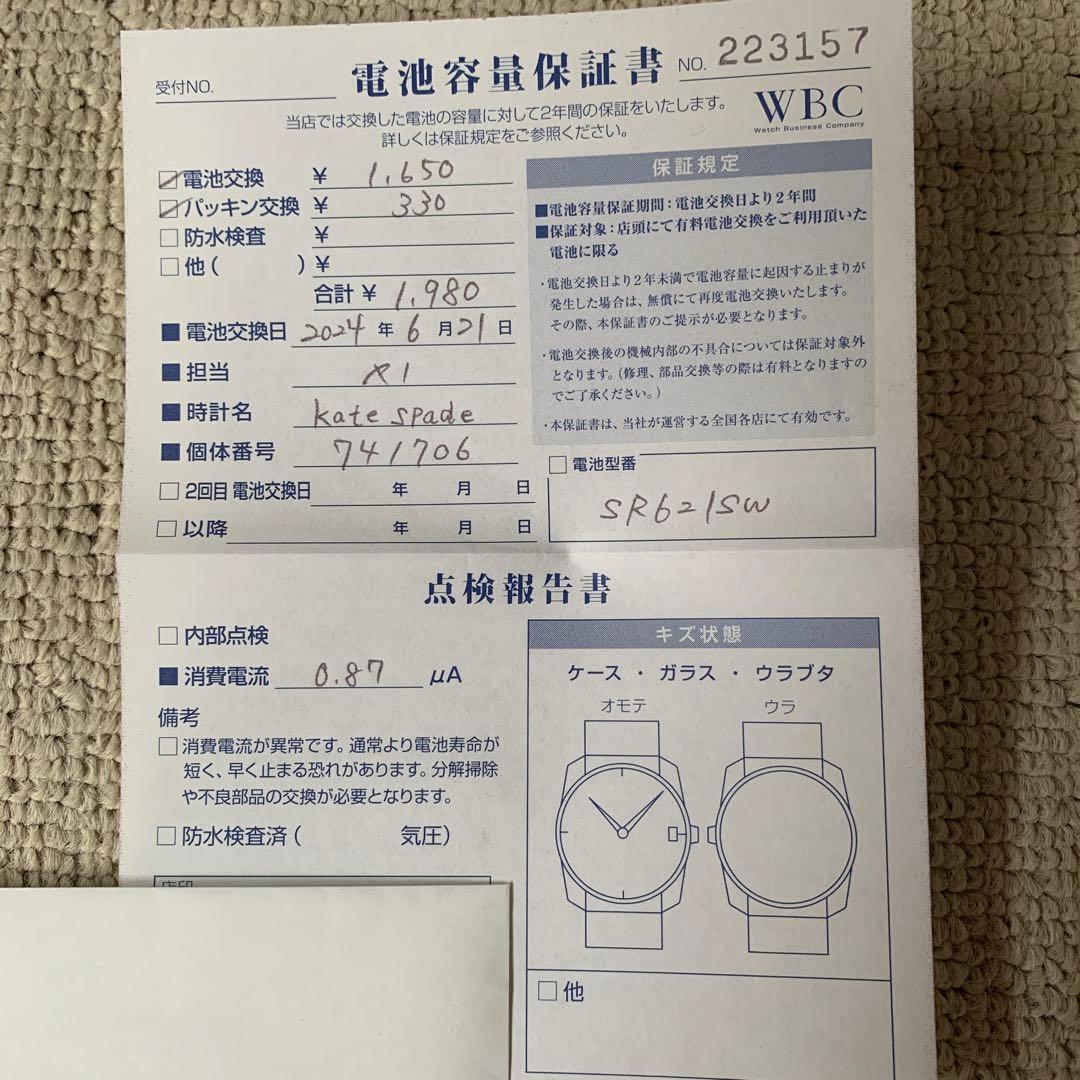 受付NO.
電池容量保証書
NO. 223157
当店では交換した電池の容量に対して2年間の保証をいたします。
詳しくは保証規定をご参照ください。
WBC
Watch Business Company
電池交換 ¥ 1,650
パッキン交換 ¥ 330
防水検査 ¥
他( )¥
合計 ¥ 1,980
■ 電池交換日 2024 年 6 月 21 日
■ 担当
■ 時計名 kate spade
■ 個体番号 741706
□ 2回目 電池交換日 年 月 日
□ 以降 年 月 日
保証規定
■電池容量保証期間：電池交換日より2年間
■保証対象：店頭にて有料電池交換をご利用頂いた
電池に限る
・電池交換日より2年未満で電池容量に起因する止まりが
発生した場合は、無償にて再度電池交換いたします。
その際、本保証書のご提示が必要となります。
・電池交換後の機械内部の不具合については保証対象外
となります。(修理、部品交換等の際は有料となりますの
でご了承ください。)
・本保証書は、当社が運営する全国各店にて有効です。
□ 電池型番
SR621SW
点検報告書
□ 内部点検
■ 消費電流 0.87 μA
備考
□ 消費電流が異常です。通常より電池寿命が
短く、早く止まる恐れがあります。分解掃除
や不良部品の交換が必要となります。
□ 防水検査済( 気圧)
キズ状態
ケース ・ ガラス ・ ウラブタ
オモテ ウラ
□ 他